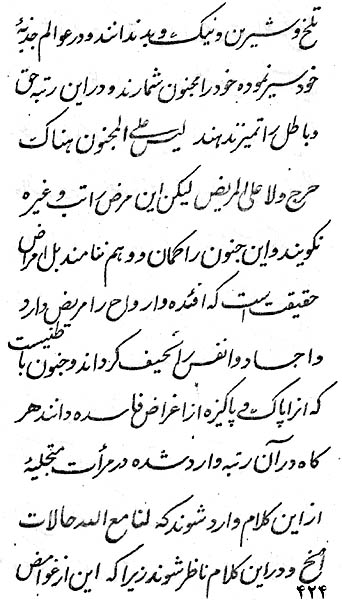 تلخ و شیرین و نیک و بد ندانند و در عوالم جذبهٔ
خود سیر نموده خود را مجنون شمارند و در این رتبه حق
و باطل را تمیز ندهند لیس علی المجنون هناک
حرج و لا علی المریض لیکن این مرض را تب و غیره
نگویند و این جنون را گمان و وهم ننامند بل امراض
حقیقت است که افئده و ارواح را مریض دارد
و اجساد و انفس را نحیف گرداند و جنون باطنیست
که انرا پاک و پاکیزه از اغراض فاسده دانند هر
گاه در آن رتبه وارد شده در مرآت متجلیهٔ
از این کلام وارد شوند که لنا مع الله حالات
الخ و در این کلام ناظر شوند زیرا که این از غوامض
۴۲۴